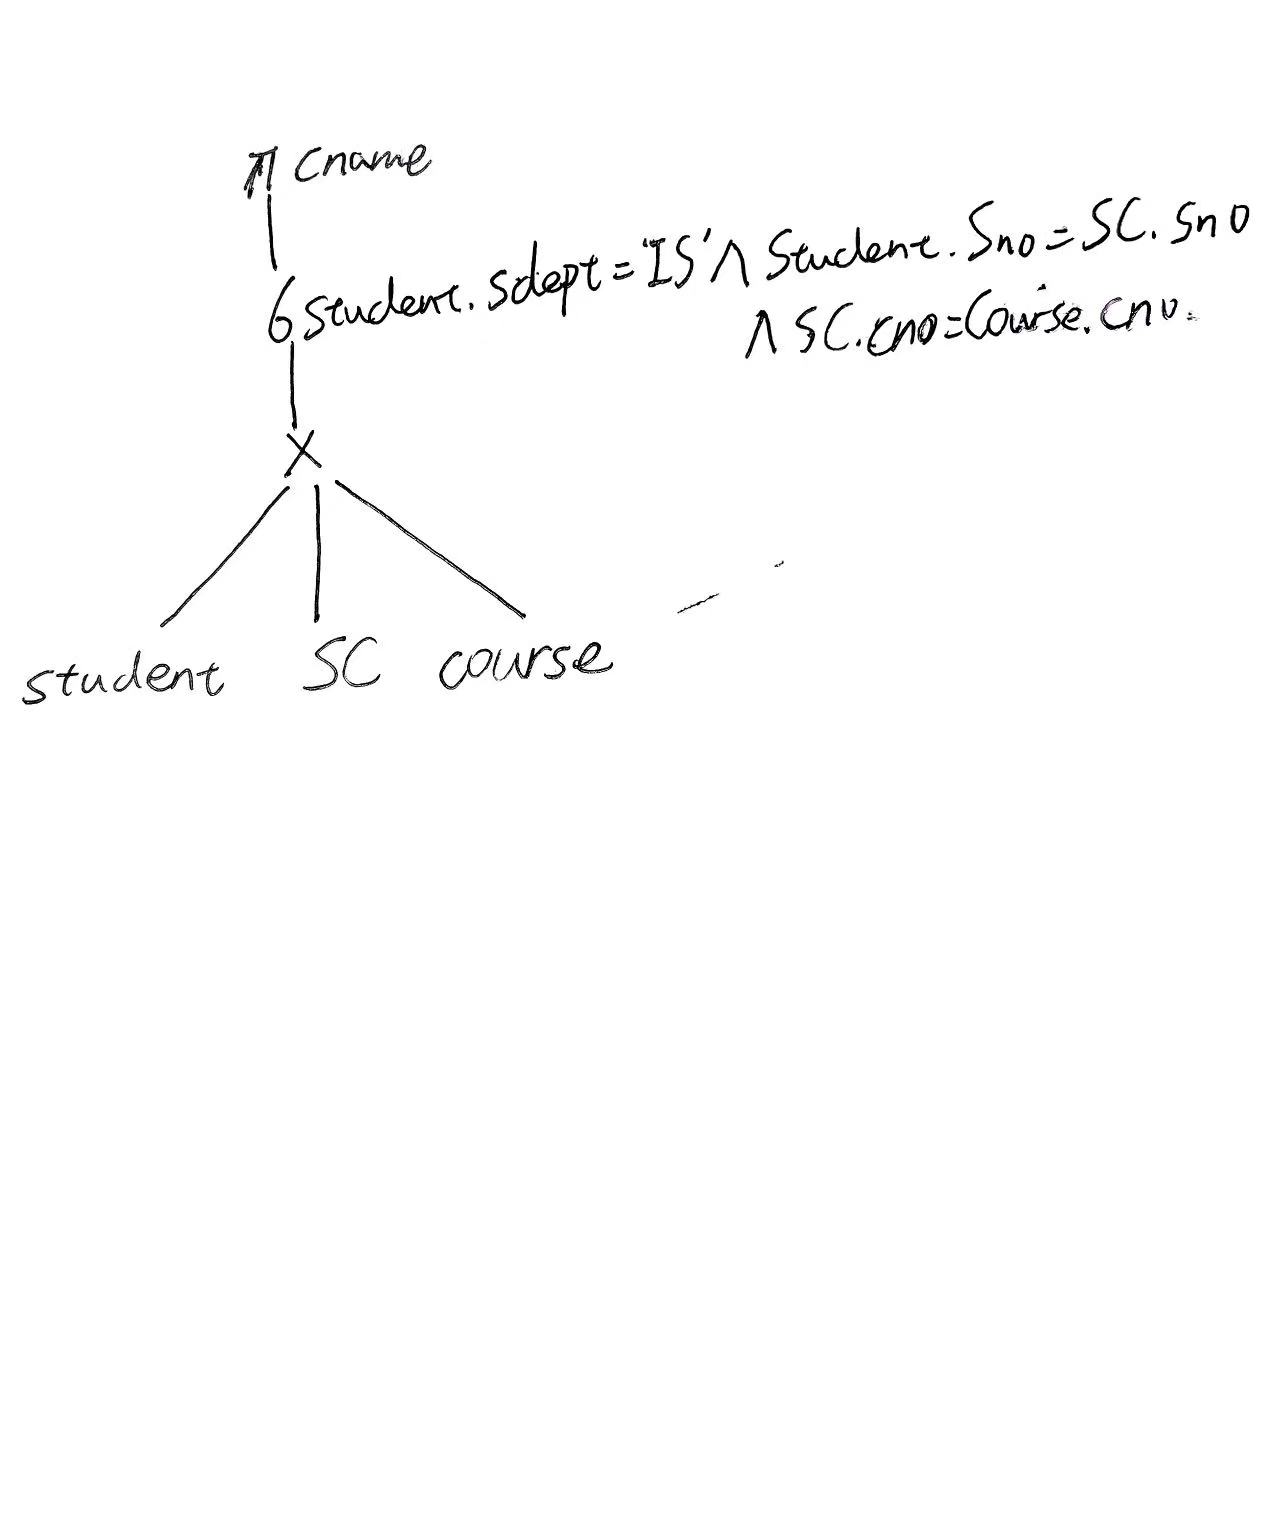 π cname
σ student.sdept='IS' ∧ Student.Sno=SC.Sno
∧ SC.cno=Course.cno.
×
student SC course